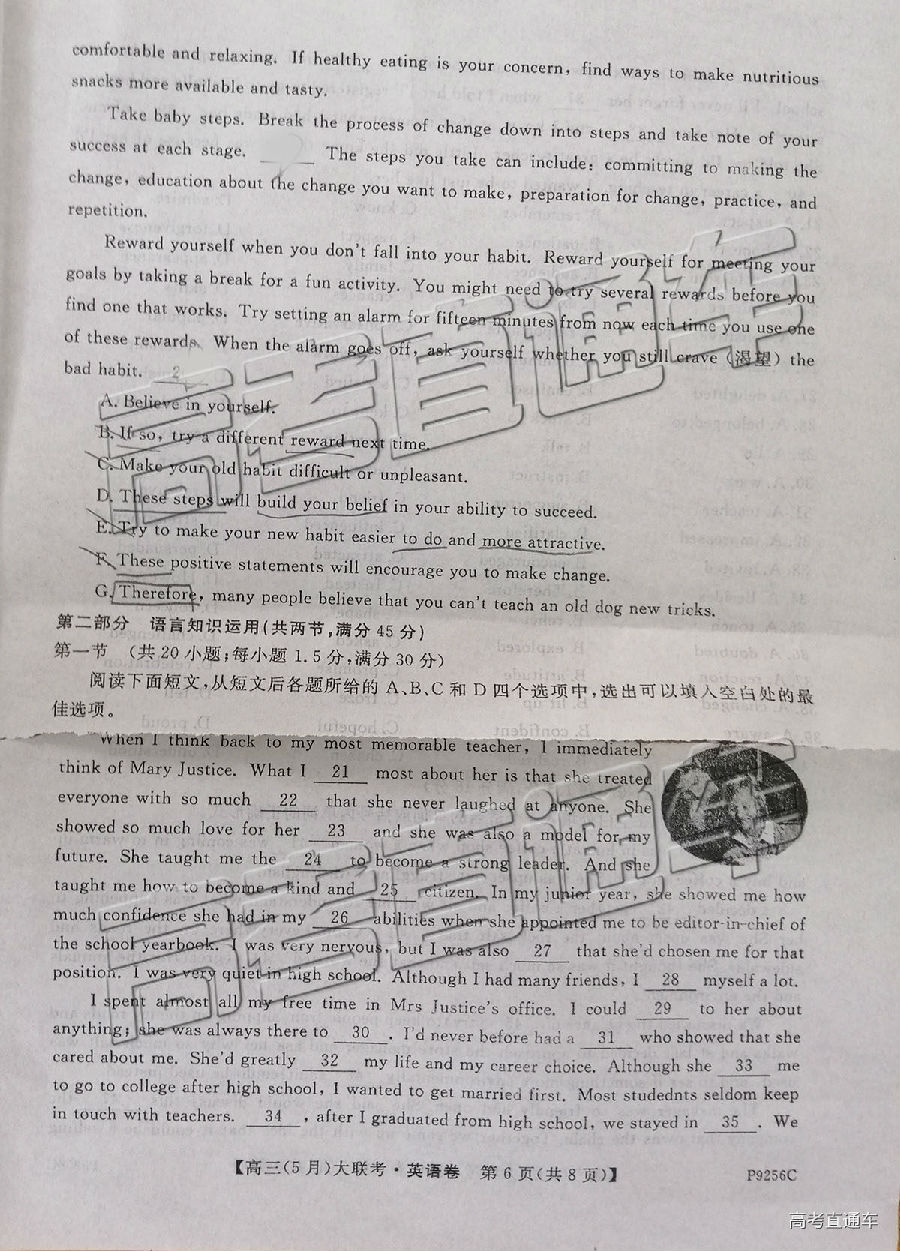 comfortable and relaxing. If healthy eating is your concern, find ways to make nutritious
snacks more available and tasty.
Take baby steps. Break the process of change down into steps and take note of your
success at each stage. ______ The steps you take can include: committing to making the
change, education about the change you want to make, preparation for change, practice, and
repetition.
Reward yourself when you don't fall into your habit. Reward yourself for meeting your
goals by taking a break for a fun activity. You might need to try several rewards before you
find one that works. Try setting an alarm for fifteen minutes from now each time you use one
of these rewards. When the alarm goes off, ask yourself whether you still crave (渴望) the
bad habit. 2
A. Believe in yourself.
B. If so, try a different reward next time.
C. Make your old habit difficult or unpleasant.
D. These steps will build your belief in your ability to succeed.
E. Try to make your new habit easier to do and more attractive.
F. These positive statements will encourage you to make change.
G. Therefore, many people believe that you can't teach an old dog new tricks.
第二部分 语言知识运用(共两节,满分 45 分)
第一节 (共 20 小题;每小题 1.5 分,满分 30 分)
阅读下面短文,从短文后各题所给的 A、B、C 和 D 四个选项中,选出可以填入空白处的最
佳选项。
When I think back to my most memorable teacher, I immediately
think of Mary Justice. What I 21 most about her is that she treated
everyone with so much 22 that she never laughed at anyone. She
showed so much love for her 23 and she was also a model for my
future. She taught me the 24 to become a strong leader. And she
taught me how to become a kind and 25 citizen. In my junior year, she showed me how
much confidence she had in my 26 abilities when she appointed me to be editor-in-chief of
the school yearbook. I was very nervous, but I was also 27 that she'd chosen me for that
position. I was very quiet in high school. Although I had many friends, I 28 myself a lot.
I spent almost all my free time in Mrs Justice's office. I could 29 to her about
anything; she was always there to 30 . I'd never before had a 31 who showed that she
cared about me. She'd greatly 32 my life and my career choice. Although she 33 me
to go to college after high school, I wanted to get married first. Most studednts seldom keep
in touch with teachers. 34 , after I graduated from high school, we stayed in 35 . We
【高三(5月)大联考·英语卷 第 6 页(共 8 页)】
P9256C
高考直通车
高考直通车
高考直通车